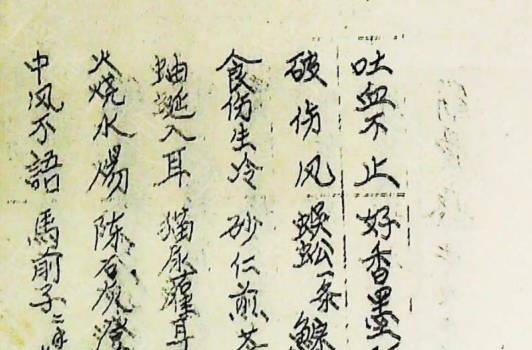 吐血不止 好香墨
破伤风 蜈蚣一条
食伤生冷 砂仁煎
蚰蜒入耳 猫尿灌耳
火烧水烫 陈石灰
中风不語 馬前子二